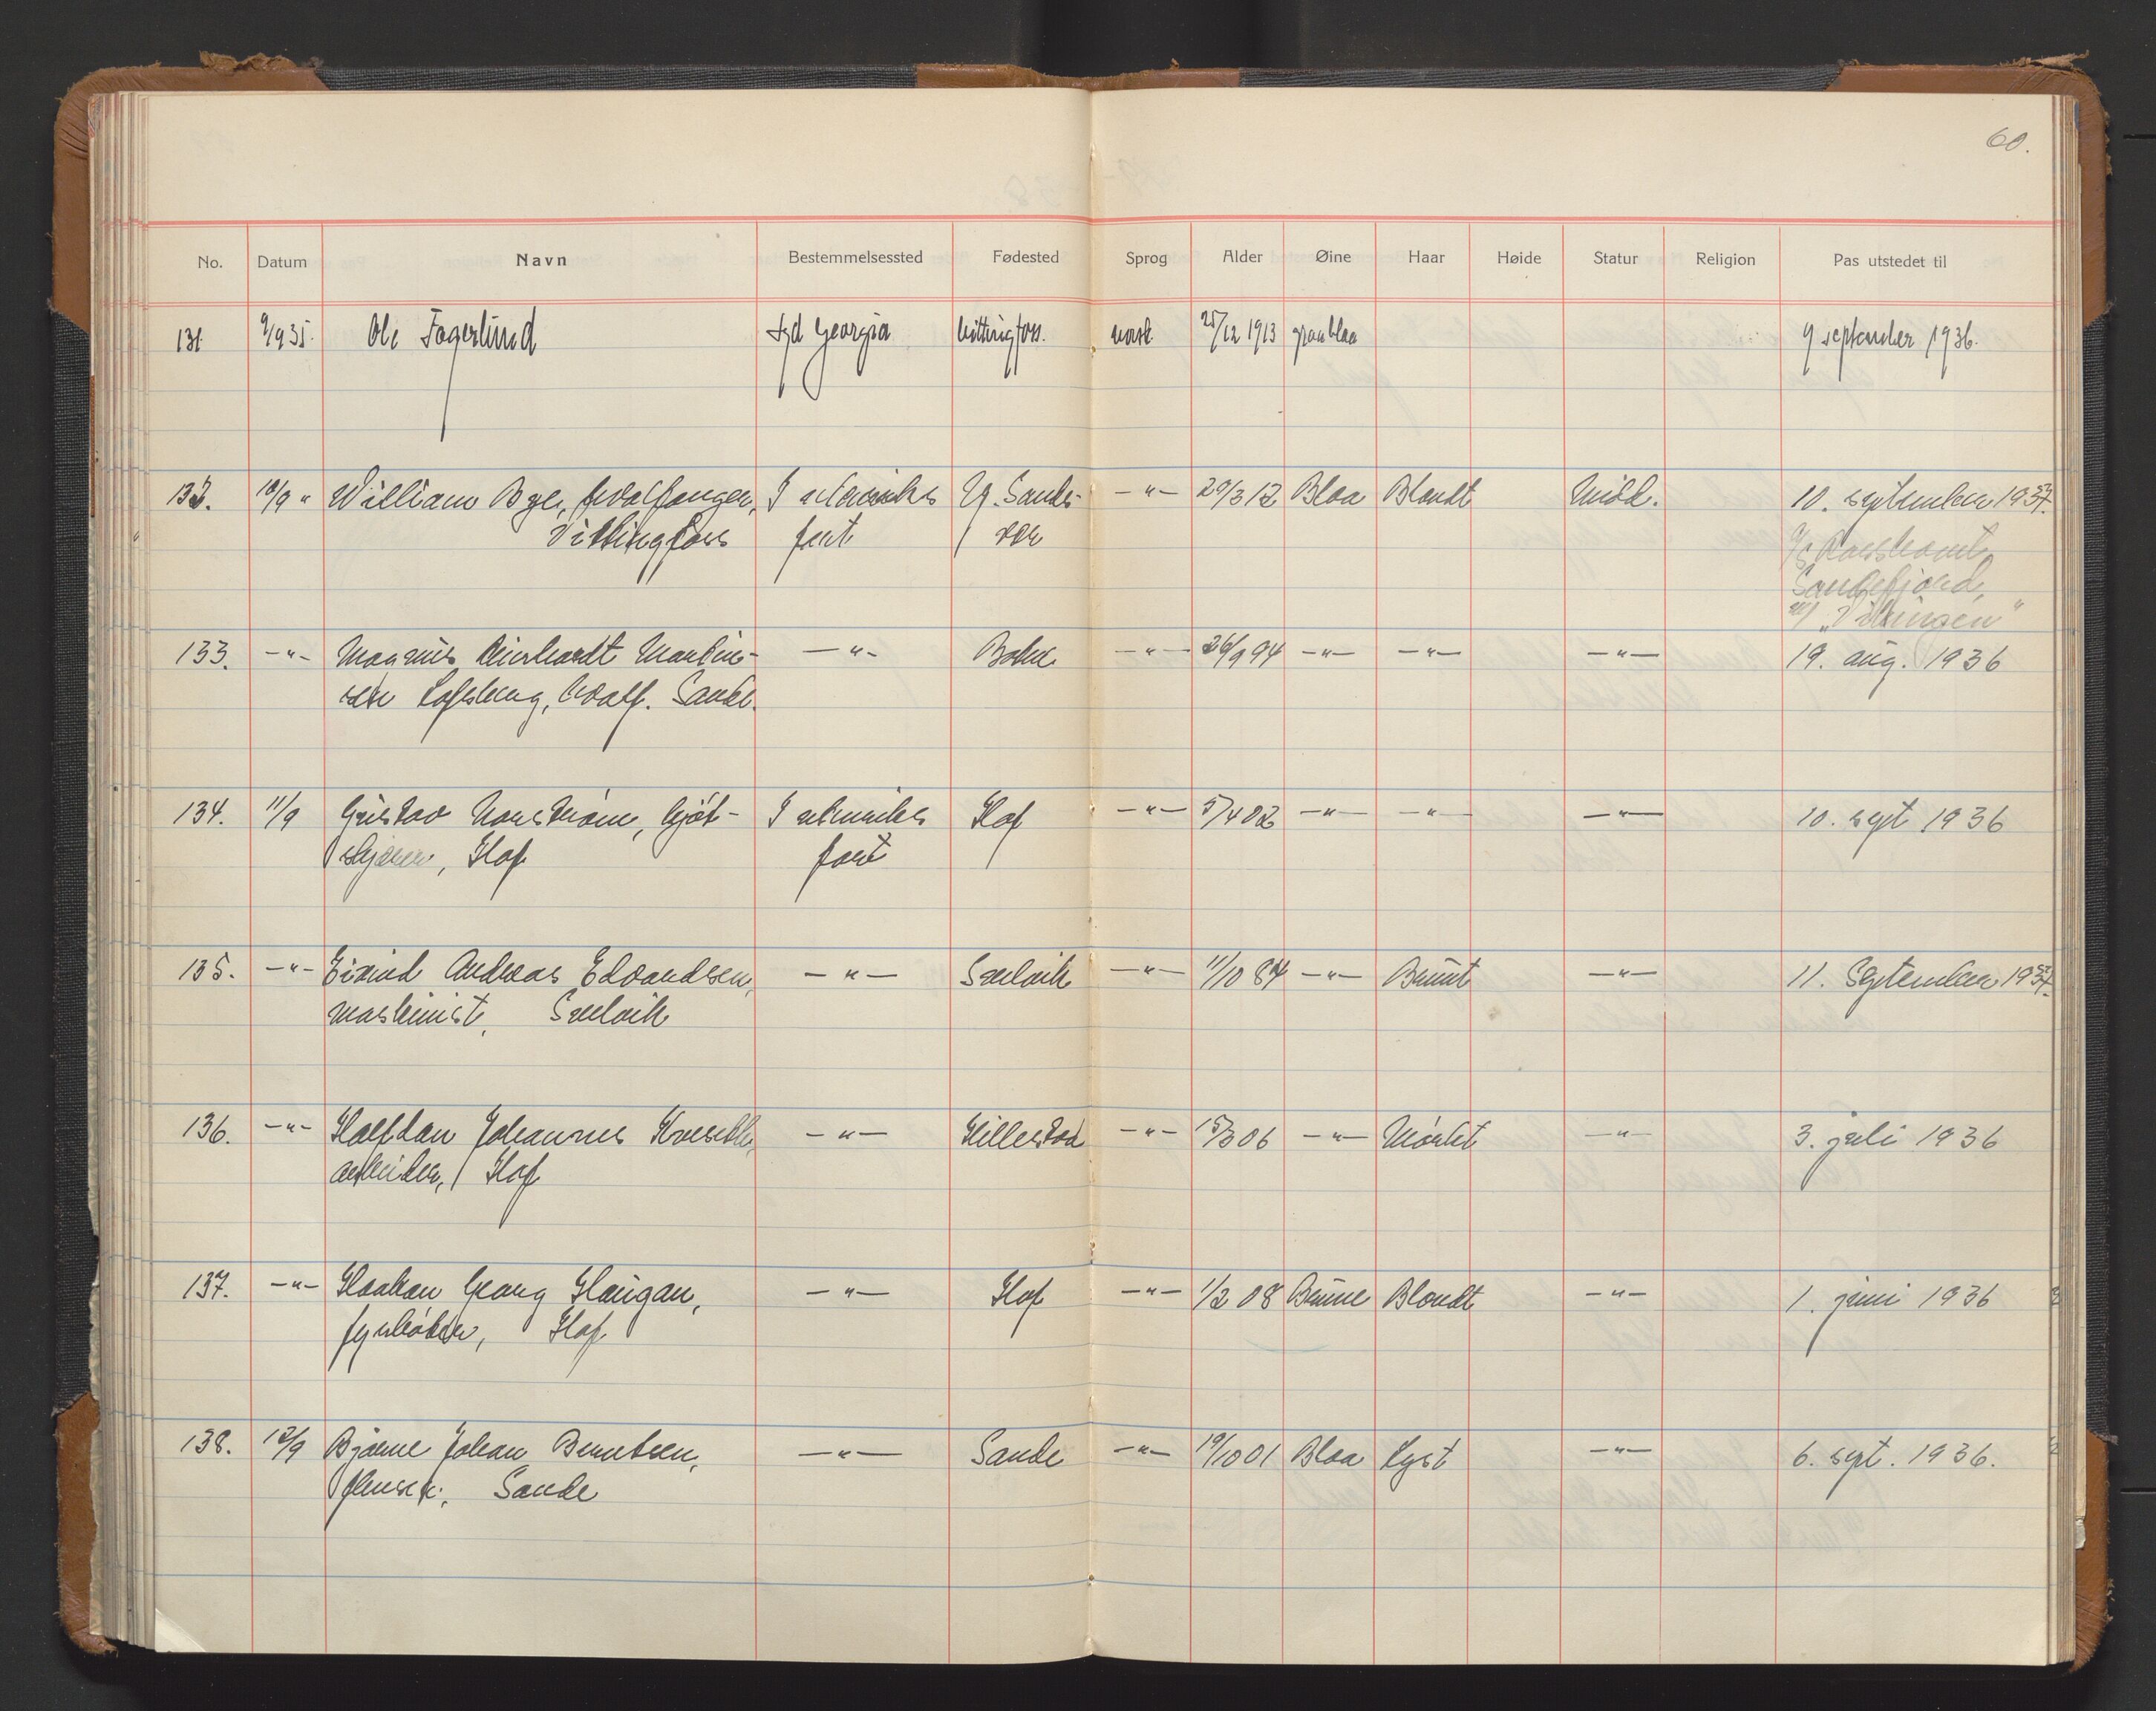 60.
No. Datum Navn Bestemmelsessted Fødested Sprog Alder Øine Haar Høide Statur Religion Pas utstedet til
131. 9/9 35. Ole Fagerlund Syd Georgia Vittingfoss. norsk 25/12 1913 graablaa 9 september 1936.
132. 10/9 " William Bye, hvalfanger, I utenriks Y. Sands- —"— 29/3 12 Blaa Blondt Midd. 10. september 1937.
Vittingfoss fart vær
A/S Rosshavet
Sandefjord,
"Vikingen"
133. —"— Magnus Reinhardt Martin- —"— Botne —"— 26/9 94 —"— —"— —"— 19. aug. 1936
sen Lofsberg, hvalf. Sande.
134. 11/9 Gustav Norstrøm, kjøt- I utenriks Hof —"— 5/4 02 —"— —"— —"— 10. sept 1936
skjærer, Hof fart
135. —"— Eivind Andreas Edvardsen, —"— Svelvik —"— 11/10 84 —"— Brunt —"— 11. September 1937.
maskinist, Svelvik
136. —"— Halfdan Johannes —"— Hillestad —"— 15/3 06 —"— Mørkt —"— 3. juli 1936
arbeider, Hof
137. —"— Haakon Georg Haugan, —"— Hof —"— 1/2 08 Brune Blondt —"— 1. juni 1936
fyrbøter, Hof
138. 12/9 Bjarne Johan Berntsen, —"— Sande —"— 19/10 01 Blaa Lyst —"— 6. sept. 1936.
flenser, Sande